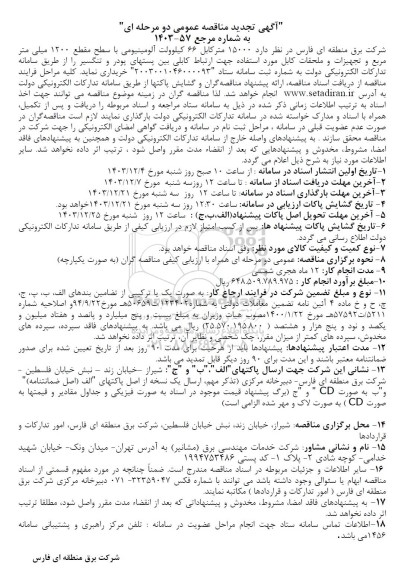 "آگهی تجدید مناقصه عمومی دو مرحله ای"
به شماره مرجع ۵۷-۱۴۰۳
شرکت برق منطقه ای فارس در نظر دارد ۱۵۰۰۰ مترکابل ۶۶ کیلوولت آلومینیومی با سطح مقطع ۱۲۰۰ میلی متر
مربع و تجهیزات و ملحقات کابل مورد استفاده جهت ارتباط کابلی بین پستهای پودر و تنگسیر را از طریق سامانه
تدارکات الکترونیکی دولت به شماره ثبت سامانه ستاد "۲۰۰۳۰۰۱۰۴۶۰۰۰۰۹۳" خریداری نماید. کلیه مراحل فرایند
مناقصه از دریافت اسناد مناقصه، ارائه پیشنهاد مناقصه‌گران و گشایش پاکتها از طریق سامانه تدارکات الکترونیکی دولت
به آدرس www.setadiran.ir انجام خواهد شد. لذا مناقصه گران در زمینه موضوع مناقصه می توانند جهت اخذ
اسناد به ترتیب اطلاعات زمانی ذکر شده در ذیل به سامانه ستاد مراجعه و اسناد مربوطه را دریافت و پس از تکمیل،
همراه با اسناد و مدارک خواسته شده در سامانه تدارکات الکترونیکی دولت بارگذاری نمایند لازم است مناقصه‌گران در
صورت عدم عضویت قبلی در سامانه ، مراحل ثبت نام در سامانه و دریافت گواهی امضای الکترونیکی را جهت شرکت در
مناقصه محقق سازند . به پیشنهادهای واصله خارج از سامانه تدارکات الکترونیکی دولت و همچنین به پیشنهادهای فاقد
امضا، مشروط، مخدوش و پیشنهادهایی که بعد از انقضاء مدت مقرر واصل شود ، ترتیب اثر داده نخواهد شد. سایر
اطلاعات مورد نیاز به شرح ذیل اعلام می گردد.
۱-تاریخ اولین انتشار اسناد در سامانه : از ساعت ۱۰ صبح روز شنبه مورخ ۱۴۰۳/۱۲/۴
۲- آخرین مهلت دریافت اسناد از سامانه : تا ساعت ۱۲ روزسه شنبه مورخ ۱۴۰۳/۱۲/۷
۳-آخرین مهلت بارگذاری اسناد در سامانه: تا ساعت ۱۲ روز سه شنبه مورخ ۱۴۰۳/۱۲/۲۱
۴- تاریخ گشایش پاکات ارزیابی در سامانه: ساعت ۱۲:۳۰ روز سه شنبه مورخ ۱۴۰۳/۱۲/۲۱خواهد بود.
۵- آخرین مهلت تحویل اصل پاکات پیشنهاد(الف،ب،ج) : ساعت ۱۲ روز شنبه مورخ ۱۴۰۳/۱۲/۲۵
۶-تاریخ گشایش پاکات پیشنهاد ها: پس از کسب امتیاز لازم در ارزیابی کیفی از طریق سامانه تدارکات الکترونیکی
دولت اطلاع رسانی می گردد.
۷-نوع کمیت و کیفیت کالای مورد نظر: وفق اسناد مناقصه خواهد بود.
۸- نحوه برگزاری مناقصه: عمومی دو مرحله ای همراه با ارزیابی کیفی مناقصه گران (به صورت یکپارچه)
۹- مدت انجام کار: ۱۲ ماه هجری شمسی
۱۰-مبلغ برآورد انجام کار: ۶۴۸.۵۰۹.۷۸۹.۹۷۵ ریال
۱۱- نوع و مبلغ تضمین شرکت در فرایند ارجاع کار: به صورت یک یا ترکیبی از تضامین بندهای الف، ب، پ، ج،
چ، ح و خ ماده ۴ آئین نامه تضمین معاملات دولتی به شماره۱۲۳۴۰۲/ت۵۰۶۵۹هـ مورخ۹۴/۹/۲۲و اصلاحیه شماره
۵۲۱۱/ت۵۷۵۹۲هـ مورخ ۱۴۰۰/۱/۲۲مصوب هیات وزیران به مبلغ بیست و پنج میلیارد و پانصد و هفتاد میلیون و
یکصد و نود و پنج هزار و هشتصد ( ۲۵.۵۷۰.۱۹۵.۸۰۰) ریال می باشد. به پیشنهادهای فاقد سپرده، سپرده های
مخدوش، سپرده های کمتر از میزان مقرر، چک شخصی و نظایر آن، ترتیب اثر داده نخواهد شد.
۱۲- مدت اعتبار پیشنهادها: پیشنهادها باید از هرحیث برای مدت ۹۰ روز بعد از تاریخ تعیین شده برای صدور
ضمانتنامه معتبر باشند و این مدت برای ۹۰ روز دیگر قابل تمدید می باشد.
۱۳- نشانی این شرکت جهت ارسال پاکتهای"الف"،"ب" و "ج": شیراز –خیابان زند – نبش خیابان فلسطین –
شرکت برق منطقه ای فارس- دبیرخانه مرکزی (تذکر مهم، ارسال یک نسخه از اصل پاکتهای "الف (اصل ضمانتنامه)"
و"ب به صورت CD " و "ج (برگ پیشنهاد قیمت موجود در اسناد به صورت فیزیکی و جداول مقادیر و قیمتها به
صورت CD ) به صورت لاک و مهر شده الزامی است)
۱۴- محل برگزاری مناقصه: شیراز، خیابان زند، نبش خیابان فلسطین، شرکت برق منطقه ای فارس، امور تدارکات و
قراردادها
۱۵- نام و نشانی مشاور: شرکت خدمات مهندسی برق (مشانیر) به آدرس تهران- میدان ونک- خیابان شهید
خدامی- کوچه شادی ۲- پلاک ۱- کد پستی ۱۹۹۴۷۵۳۴۸۶
۱۶- سایر اطلاعات و جزئیات مربوطه در اسناد مناقصه مندرج است. ضمناً چنانچه در مورد مفهوم قسمتی از اسناد
مناقصه ابهام یا سئوالی وجود داشته باشد می توانند با شماره فکس ۳۲۳۵۹۰۴۷- ۰۷۱ دبیرخانه مرکزی شرکت برق
منطقه ای فارس ( امور تدارکات و قراردادها ) مکاتبه نمایند.
۱۷- به پیشنهادهای فاقد امضا، مشروط، مخدوش و پیشنهاداتی که بعد از انقضاء مدت مقرر واصل شود، مطلقا ترتیب
اثر داده نخواهد شد.
۱۸-اطلاعات تماس سامانه ستاد جهت انجام مراحل عضویت در سامانه : تلفن مرکز راهبری و پشتیبانی سامانه
۱۴۵۶می باشد.
شرکت برق منطقه ای فارس